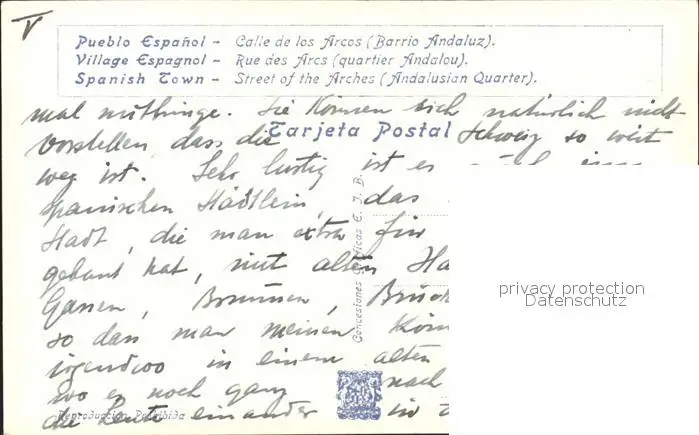 V
Pueblo Español – Calle de los Arcos (Barrio Andaluz).
Village Espagnol – Rue des Arcs (quartier Andalou).
Spanish Town – Street of the Arches (Andalusian Quarter).
mal mitbringe. Sie können sich natürlich nicht
Tarjeta Postal
vorstellen, dass die Schweiz so weit
weg ist. Sehr lustig ist es
spanischen Städtlein, das
Stadt, die man extra für
gebaut hat, mit alten
Gassen, Brunnen,
so dass man meinen
irgendwo in einem alten
wo es noch ganz nach
die Leute einander in
Concesiones Gráficas E. J. B.
Reproducción Prohibida
privacy protection
Datenschutz